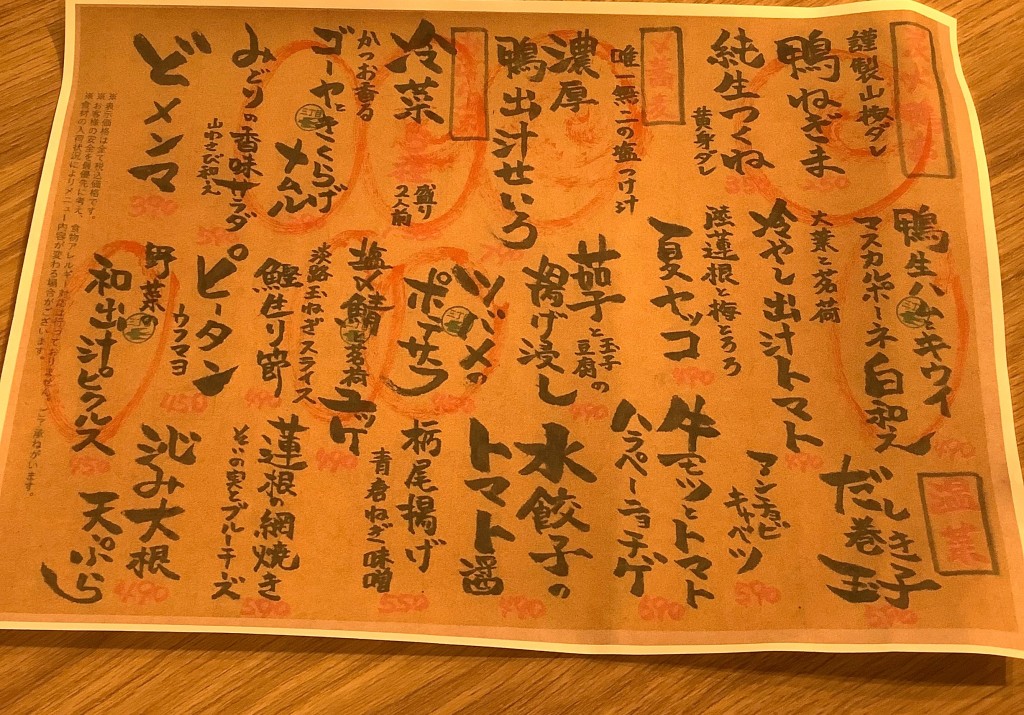 謹製山椒ダレ
鴨ねぎま
350
純生つくね
黄身ダレ
350
唯一無二の塩つけ汁
濃厚
鴨出汁せいろ
冷菜
盛り
2人前
かつお香る
ゴーヤときくらげ
ナムル
みどりの香味サラダ
山わさび和え
590
どメンマ
390
鴨生ハムとキウイ
マスカルポーネ白和え
490
大葉と茗荷
冷やし出汁トマト
490
陸蓮根と梅とろろ
夏ヤッコ
490
茄子と玉子豆腐の
揚げ浸し
490
ツバメの
ポテサラ
塩〆鯖と茗荷
ユッケ
490
淡路玉ねぎスライス
鰹生り節
490
ピータン
ウフマヨ
450
野菜の
和出汁ピクルス
450
温菜
だし巻き玉子
590
アンチョビ
キャベツ
590
牛モツとトマト
ハラペーニョチゲ
690
水餃子の
トマト醤
490
栃尾揚げ
青唐ねぎ味噌
550
蓮根の網焼き
そばの実とブルーチーズ
590
沁み大根
天ぷら
490
※表示価格は全て税込価格です。
※お客様の安全を最優先に考え、食物アレルギー対応は行っておりません。ご了承願います。
※食材の入荷状況によりメニュー内容が変わる場合がございます。